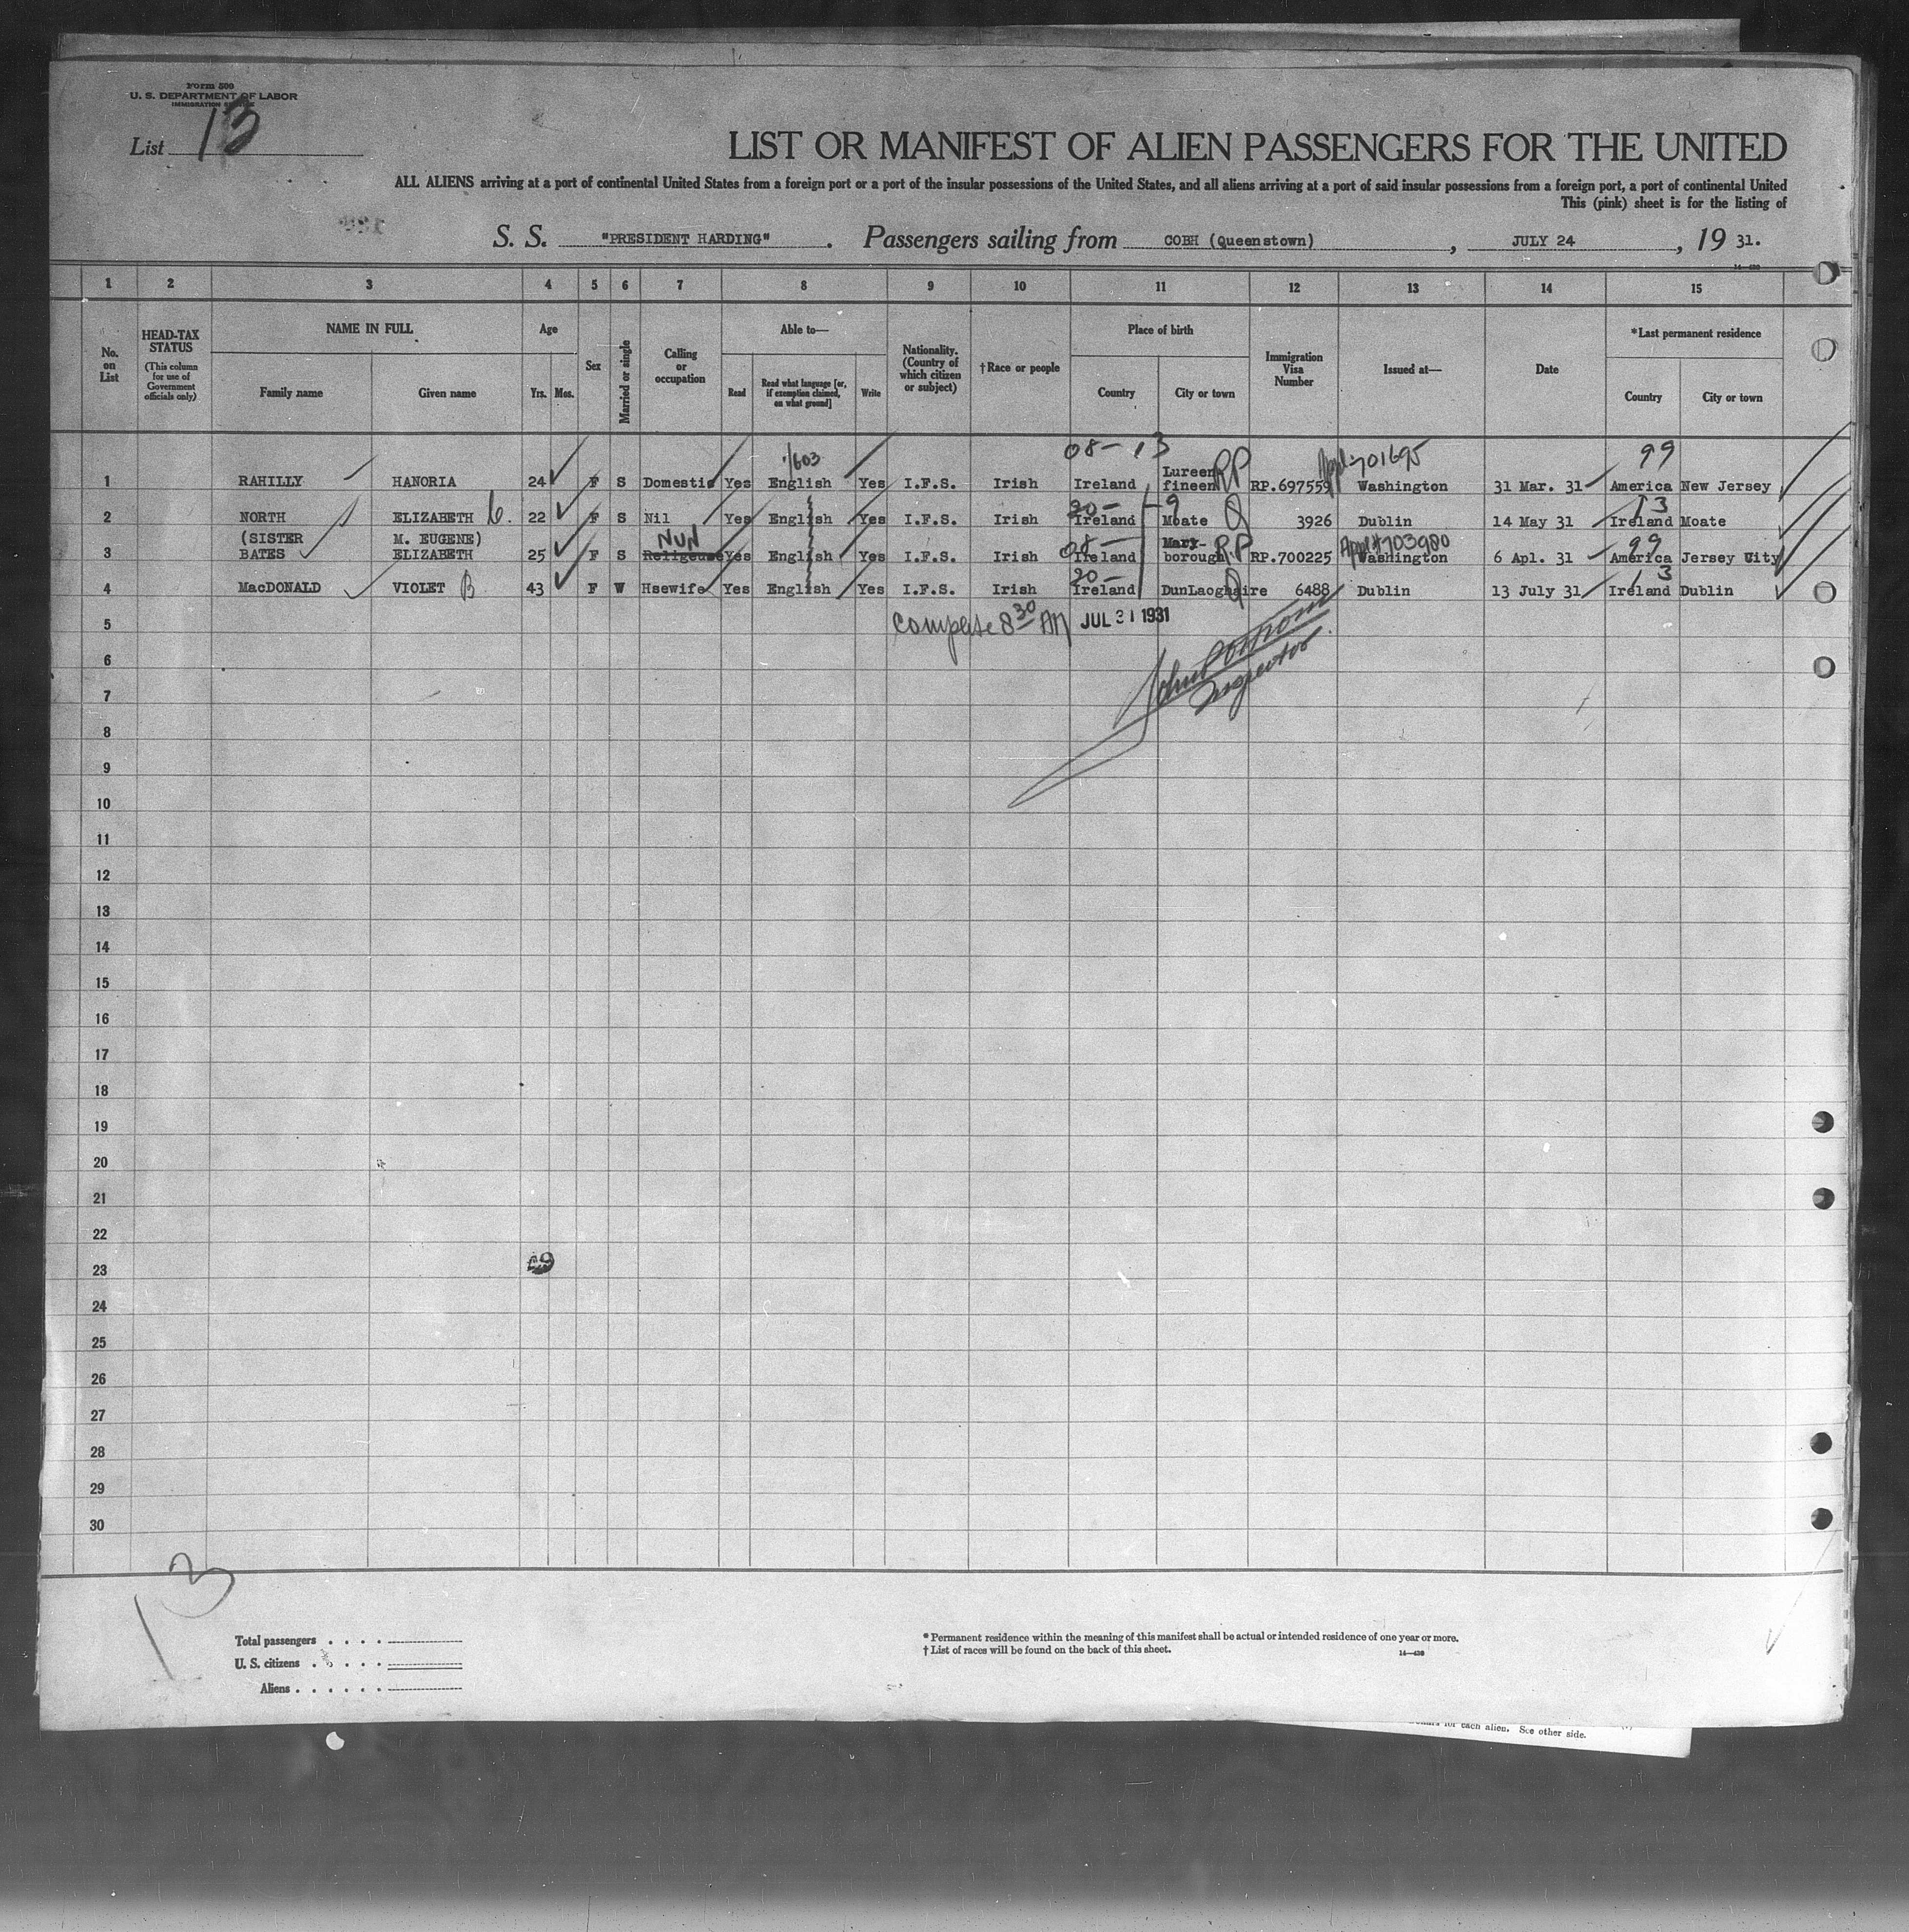 Form 500
U. S. DEPARTMENT OF LABOR
IMMIGRATION SERVICE
List 13
LIST OR MANIFEST OF ALIEN PASSENGERS FOR THE UNITED
ALL ALIENS arriving at a port of continental United States from a foreign port or a port of the insular possessions of the United States, and all aliens arriving at a port of said insular possessions from a foreign port, a port of continental United
This (pink) sheet is for the listing of
S. S. "PRESIDENT HARDING". Passengers sailing from COBH (Queenstown), JULY 24, 19 31.
1 2 3 4 5 6 7 8 9 10 11 12 13 14 15
No. on List
HEAD-TAX STATUS (This column for use of Government officials only)
NAME IN FULL
Family name Given name
Age
Yrs. Mos.
Sex
Married or single
Calling or occupation
Able to—
Read Read what language [or, if exemption claimed, on what ground] Write
Nationality. (Country of which citizen or subject)
†Race or people
Place of birth
Country City or town
Immigration Visa Number
Issued at—
Date
*Last permanent residence
Country City or town
1603 08- 13 Appl-701695 99
1 RAHILLY HANORIA 24 F S Domestic Yes English Yes I.F.S. Irish Ireland Lureen fineen RP RP.697559 Washington 31 Mar. 31 America New Jersey
20- 9 13
2 NORTH ELIZABETH 22 F S Nil Yes English Yes I.F.S. Irish Ireland Moate Q 3926 Dublin 14 May 31 Ireland Moate
(SISTER M. EUGENE) NUN 08- 99
3 BATES ELIZABETH 25 F S Religeuse Yes English Yes I.F.S. Irish Ireland Mary- borough RP RP.700225 Appl#703980 Washington 6 Apl. 31 America Jersey City
20- 13
4 MacDONALD VIOLET B 43 F W Hsewife Yes English Yes I.F.S. Irish Ireland DunLaoghaire Q 6488 Dublin 13 July 31 Ireland Dublin
5 Complete 8 30 AM JUL 31 1931
6
Inspector
7
8
9
10
11
12
13
14
15
16
17
18
19
20
21
22
23
24
25
26
27
28
29
30
13
Total passengers
U. S. citizens
Aliens
* Permanent residence within the meaning of this manifest shall be actual or intended residence of one year or more.
† List of races will be found on the back of this sheet.
14—430
for each alien. See other side.